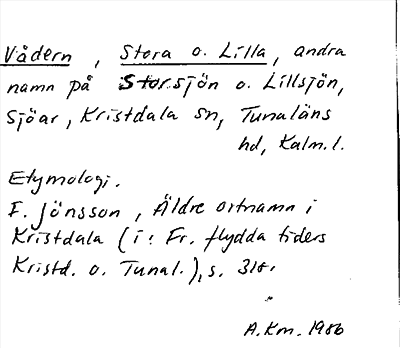 Vådern, Stora o. Lilla, andra
namn på Storsjön o. Lillsjön,
Sjöar, Kristdala sn, Tunaläns
hd, Kalm. l.
Etymologi.
F. Jönsson, Äldre ortnamn i
Kristdala (i: Fr. flydda tiders
Kristd. o. Tunal.), s. 318.
A.Km. 1986